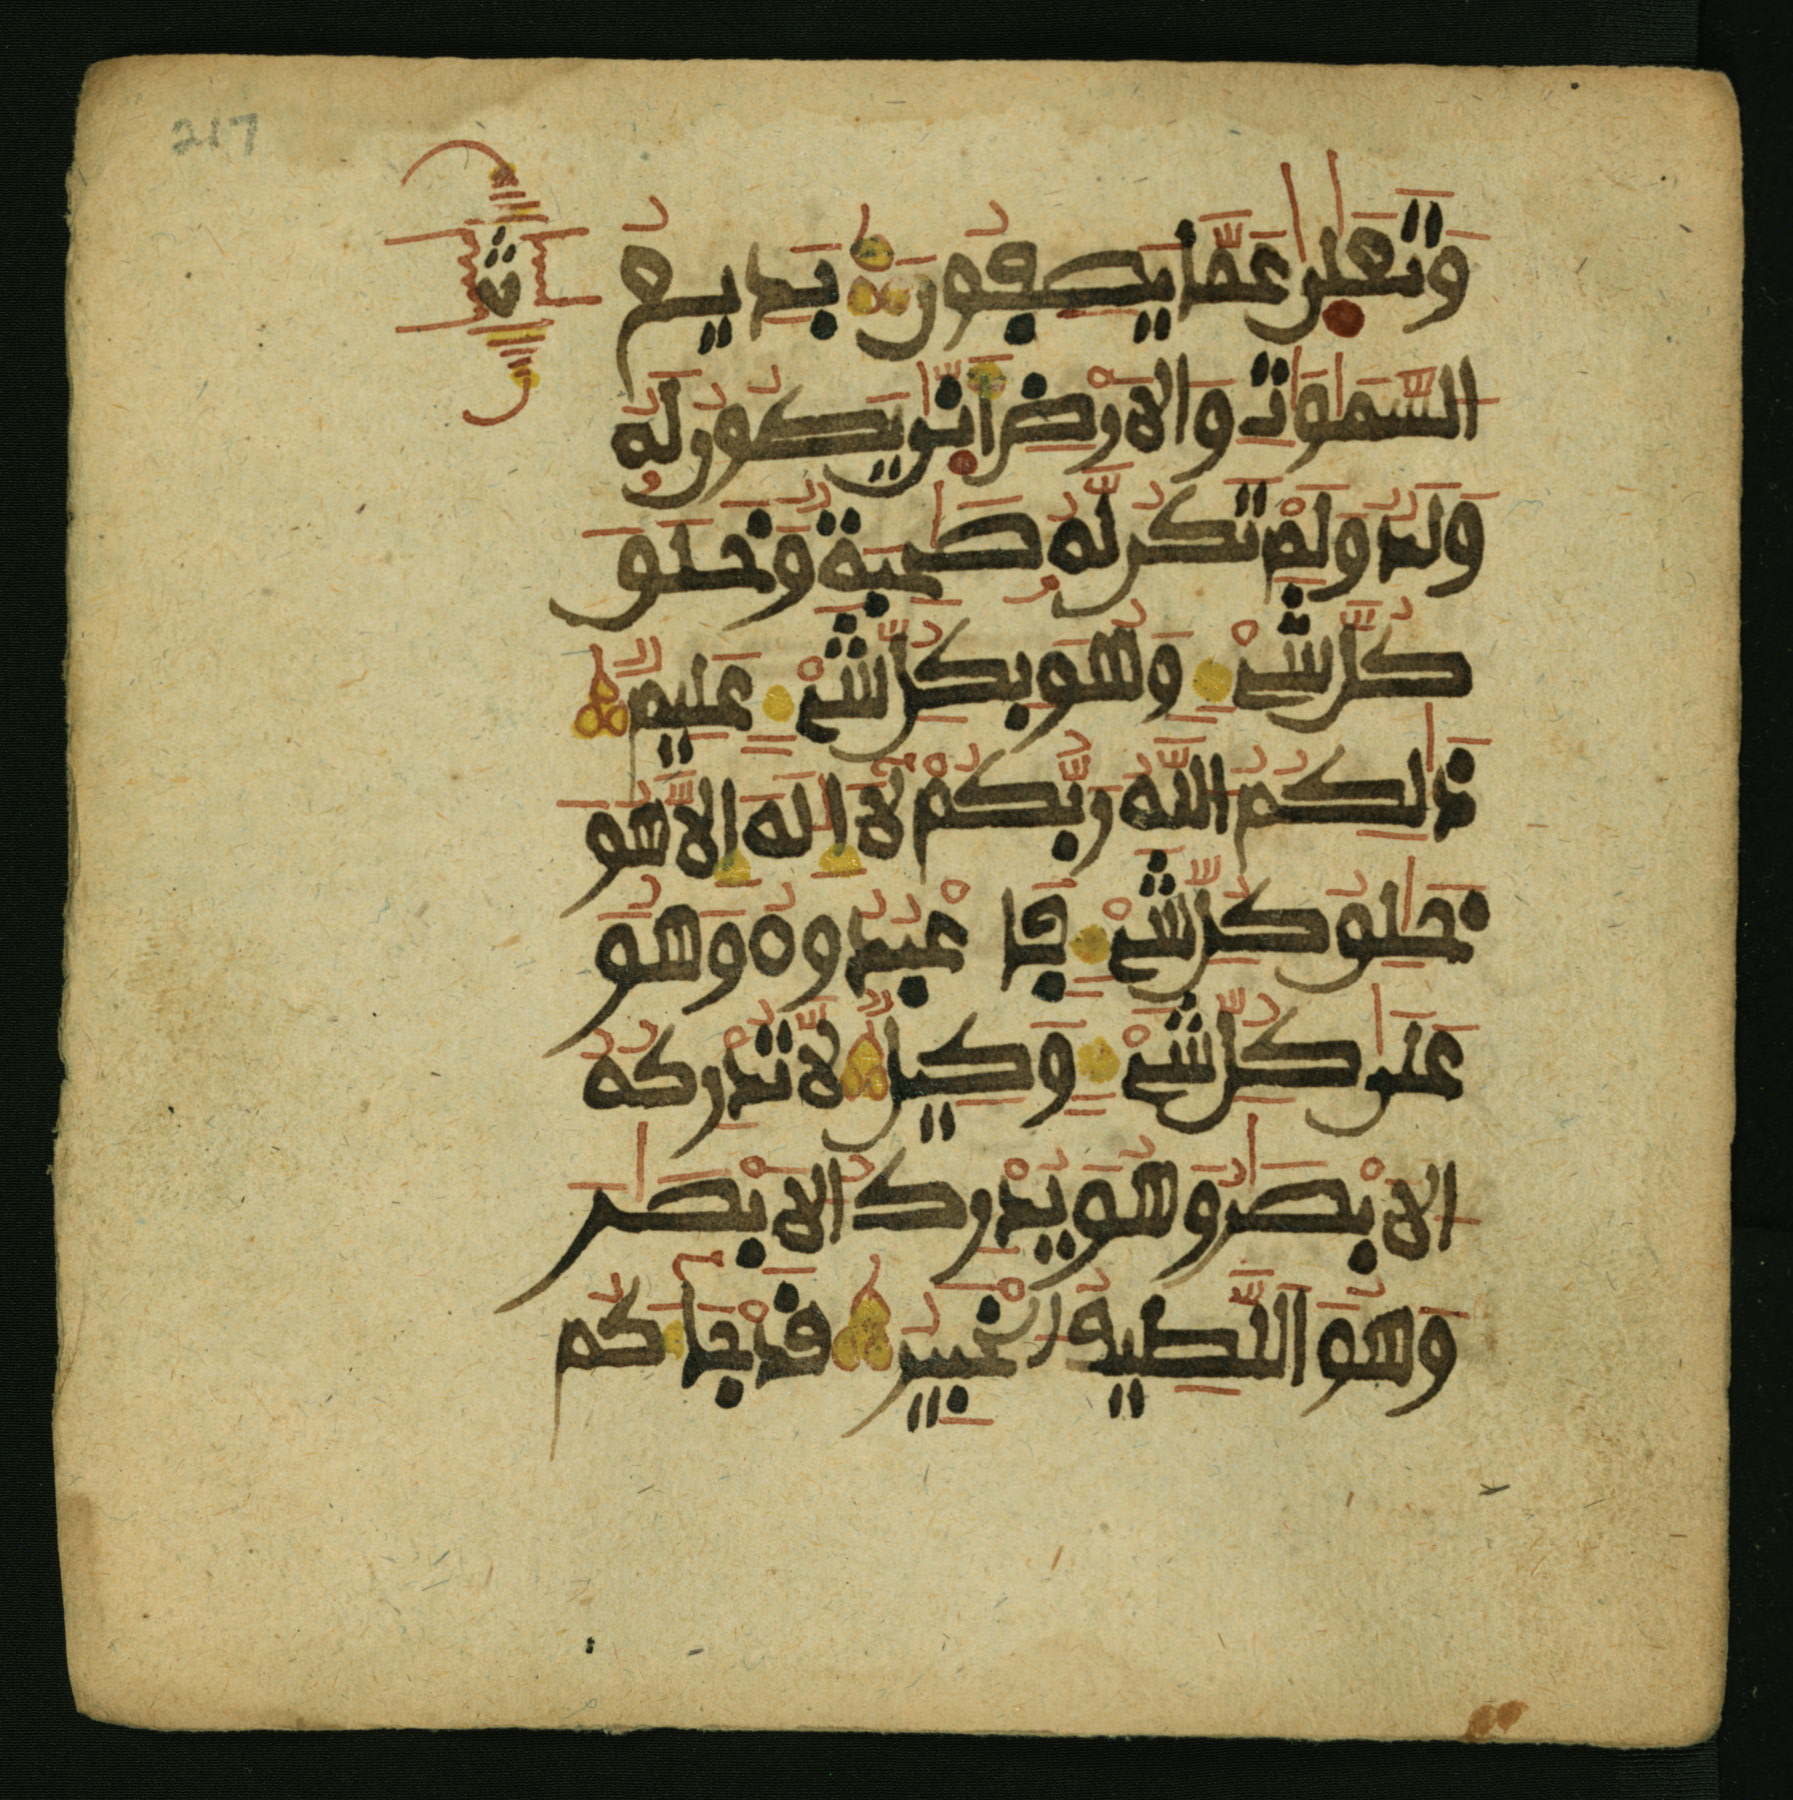 217
وَتَعَٰلَىٰ عَمَّا يَصِفُونَ بَدِيعُ
ث
السَّمَٰوَٰتِ وَالَارْضِ أَنّٰى يَكُونُ لَهُ
وَلَدٌ وَلَمْ تَكُن لَّهُ صَٰحِبَةٌ وَخَلَقَ
كُلَّ شَيْءٍ وَهُوَ بِكُلِّ شَيْءٍ عَلِيمٌ
ذَٰلِكُمُ اللَّهُ رَبُّكُمْ لَآ إِلَٰهَ إِلَّا هُوَ
خَٰلِقُ كُلِّ شَيْءٍ فَاعْبُدُوهُ وَهُوَ
عَلَىٰ كُلِّ شَيْءٍ وَكِيلٌ لَّا تُدْرِكُهُ
الَابْصَٰرُ وَهُوَ يُدْرِكُ الَابْصَٰرَ
وَهُوَ اللَّطِيفُ الْخَبِيرُ قَدْ جَآءَكُم